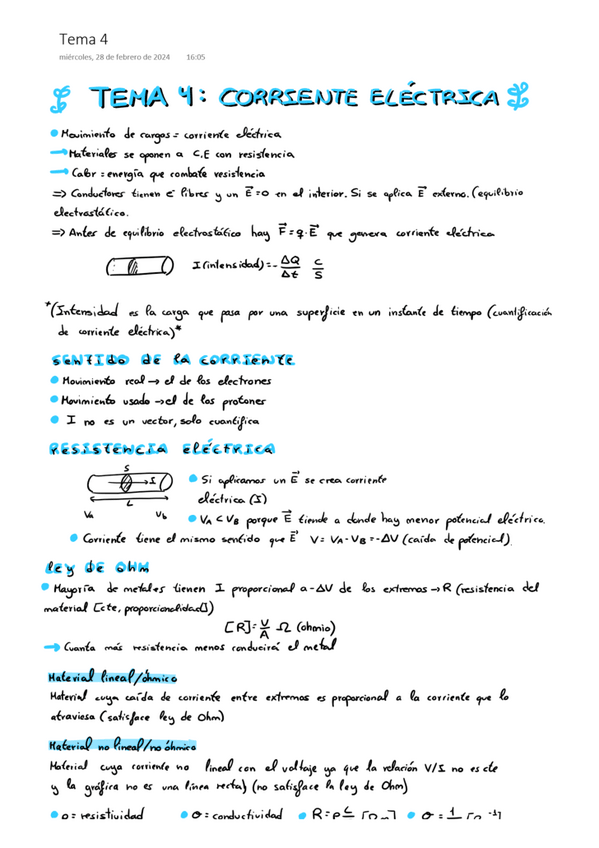 Tema 4
miércoles, 28 de febrero de 2024 16:05
TEMA 4: CORRIENTE ELÉCTRICA
Movimiento de cargas = corriente eléctrica
→ Materiales se oponen a C.E con resistencia
→ Calor = energía que combate resistencia
=> Conductores tienen e⁻ libres y un E⃗=0 en el interior. Si se aplica E⃗ externo. (equilibrio
electrostático.
=> Antes de equilibrio electrostático hay F⃗=q·E⃗ que genera corriente eléctrica
I (intensidad) = - ΔQ/Δt C/S
*(Intensidad es la carga que pasa por una superficie en un instante de tiempo (cuantificación
de corriente eléctrica)*
sentido de la corriente
Movimiento real → el de los electrones
Movimiento usado → el de los protones
I no es un vector, solo cuantifica
Resistencia eléctrica
S
I
L
VA Vb
Si aplicamos un E⃗ se crea corriente
eléctrica (I)
VA < VB porque E⃗ tiende a donde hay menor potencial eléctrico.
Corriente tiene el mismo sentido que E⃗ V = VA - VB = -ΔV (caída de potencial).
ley de ohm
Mayoría de metales tienen I proporcional a -ΔV de los extremos → R (resistencia del
material [cte, proporcionalidad])
[R] = V/A Ω (ohmio)
→ Cuanta más resistencia menos conducirá el metal
Material lineal/óhmico
Material cuya caída de corriente entre extremos es proporcional a la corriente que lo
atraviesa (satisface ley de Ohm)
Material no lineal/no óhmico
Material cuya corriente no lineal con el voltaje ya que la relación V/I no es cte
y la gráfica no es una línea recta) (no satisface la ley de Ohm)
ρ = resistividad σ = conductividad